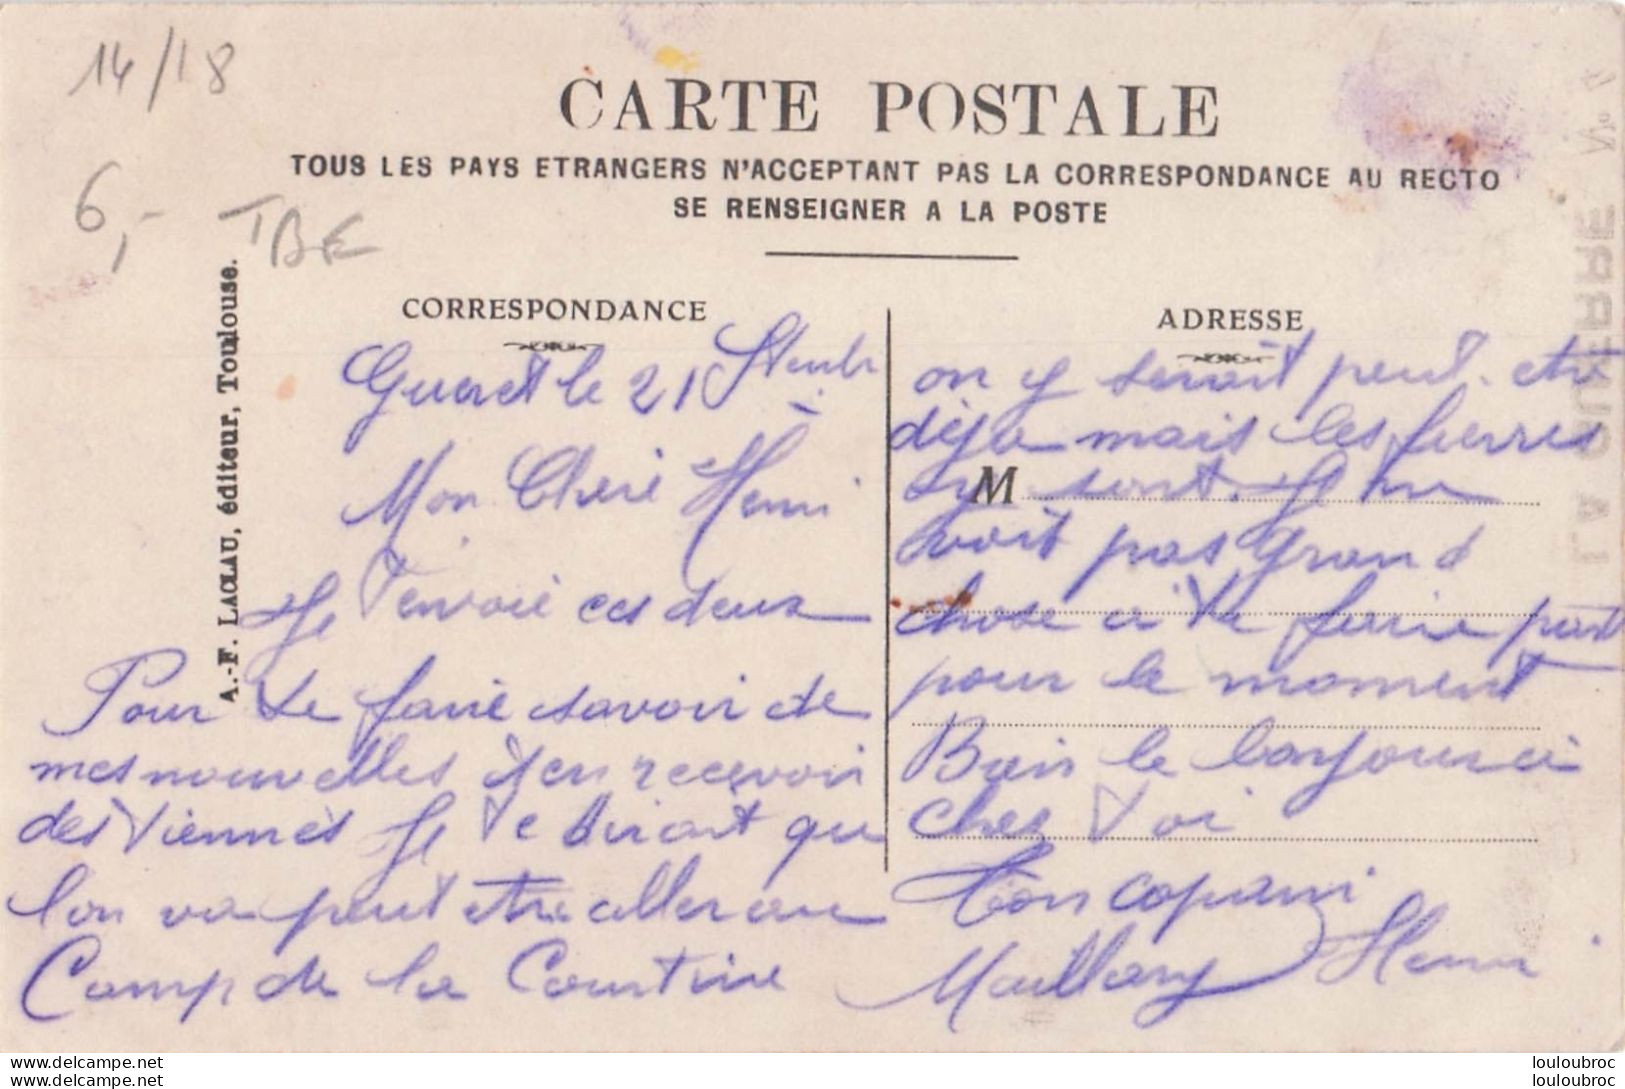 14/18
CARTE POSTALE
TOUS LES PAYS ETRANGERS N'ACCEPTANT PAS LA CORRESPONDANCE AU RECTO
SE RENSEIGNER A LA POSTE
6,-
TBE
A.-F. LACLAU, éditeur, Toulouse.
CORRESPONDANCE
Gueret le 21
Mon Cheré Henri
Je t'envoie ces deux
Pour te faire savoir de
mes nouvelles d'en recevoir
des tiennes Je te dirait que
l'on va peut etre aller au
Camp de la Courtine
ADRESSE
M
on y serait peut-etre
déja mais les
y sont. Je ne
voit pas grand
chose a te faire part
pour le moment
Bien le bonjour ci
chez toi
Ton copain
Henri
LA GUERRE
www.delcampe.net
www.delcampe.net
louloubroc
louloubroc